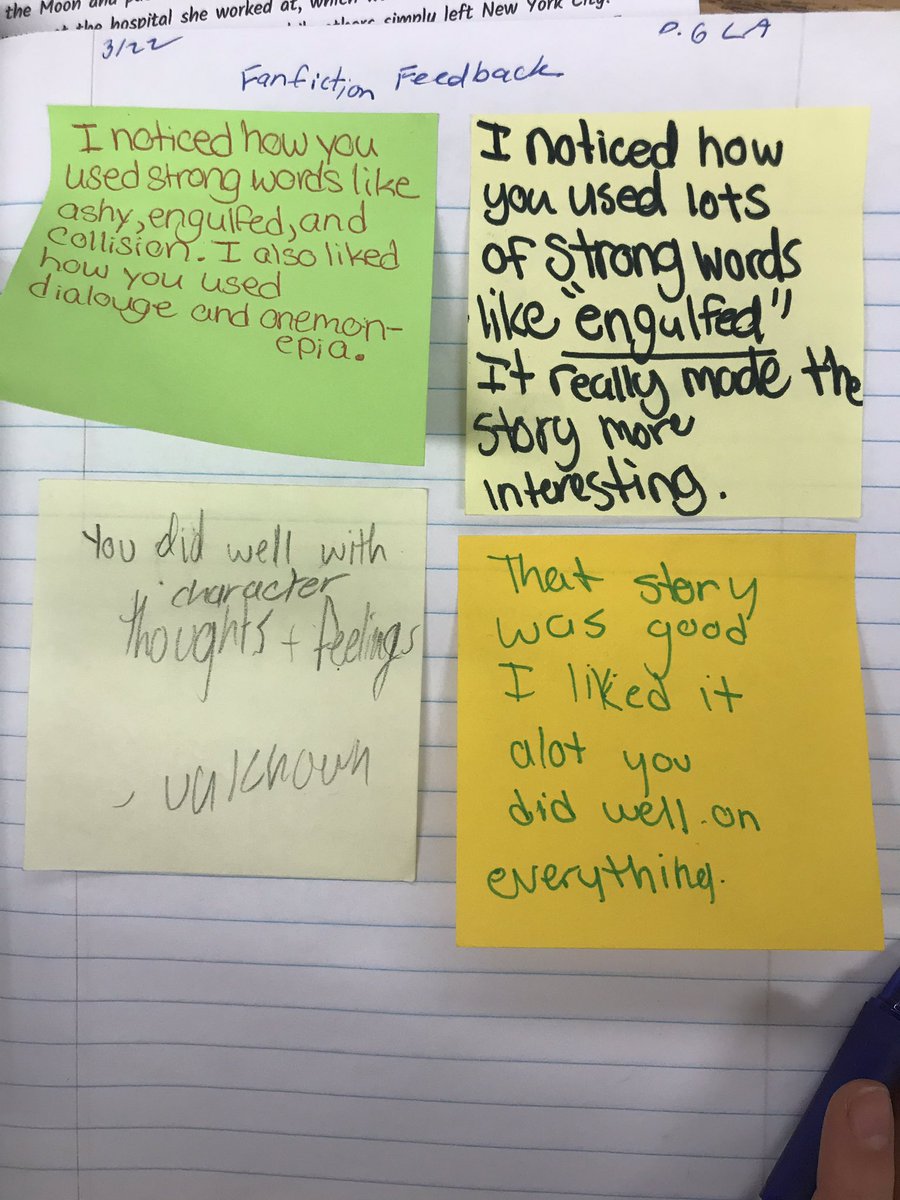 the Moon and
the hospital she worked at, which
simply left New York City.
3/22
P. 6 LA
Fanfiction Feedback
I noticed how you
used strong words like
ashy, engulfed, and
collision. I also liked
how you used
dialouge and onemon-
epia.
I noticed how
you used lots
of strong words
like "engulfed"
It really made the
story more
interesting.
You did well with
character
thoughts + feelings
- unknown
That story
was good
I liked it
alot you
did well on
everything.